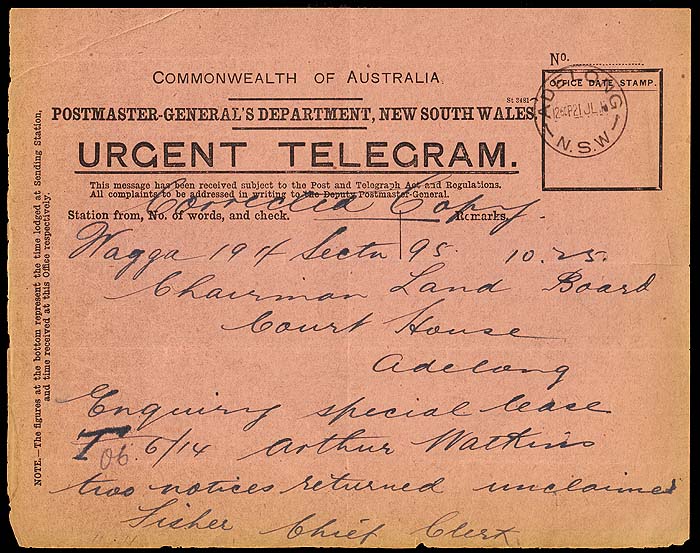 No.
COMMONWEALTH OF AUSTRALIA.
OFFICE DATE STAMP.
St 3481
POSTMASTER-GENERAL'S DEPARTMENT, NEW SOUTH WALES.
ADELONG
21 JL
N.S.W
URGENT TELEGRAM.
This message has been received subject to the Post and Telegraph Act and Regulations.
All complaints to be addressed in writing to the Deputy Postmaster-General.
Corrected Copy.
Station from, No. of words, and check.
Remarks.
Wagga 194 Sectn 95. 10.25.
Chairman Land Board
Court House
Adelong
Enquiry special lease
T 06. 6/14 Arthur Watkins
two notices returned unclaimed
Fisher Chief Clerk
NOTE.—The figures at the bottom represent the time lodged at Sending Station,
and time received at this Office respectively.